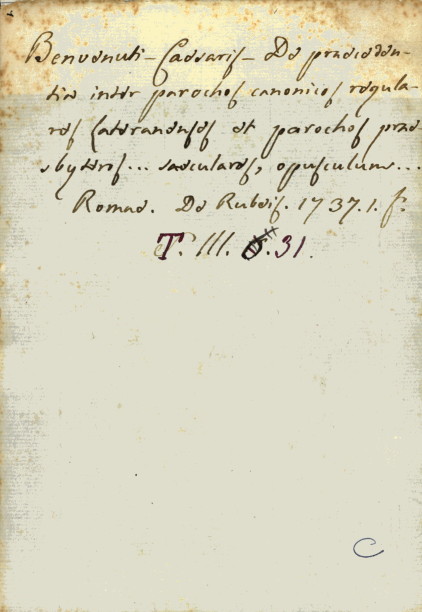 Benvenuti - Caesaris - De praeceden-
tia inter parochos canonicos regula-
res Lateranenses et parochos prae-
sbyteros... saeculares, opusculum...
Romae. De Rubeis. 1737. 1. f.
T. III. 31.
C